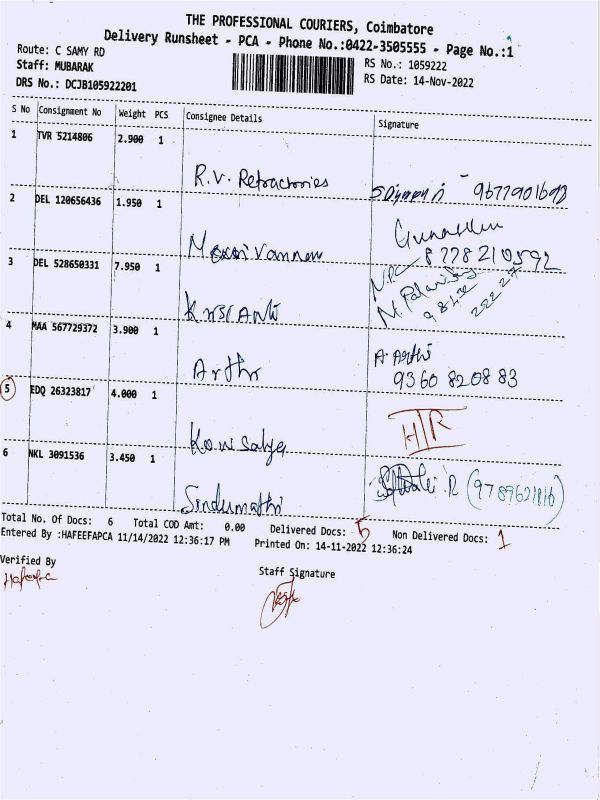 THE PROFESSIONAL COURIERS, Coimbatore
Delivery Runsheet - PCA - Phone No.:0422-3505555 - Page No.:1
Route: C SAMY RD
Staff: MUBARAK
DRS No.: DCJB105922201
RS No.: 1059222
RS Date: 14-Nov-2022
S No Consignment No Weight PCS Consignee Details Signature
1 TVR 5214806 2.900 1
R.V. Refractories 9677901698
2 DEL 120656436 1.950 1
8778210592
3 DEL 528650331 7.950 1
4 MAA 567729372 3.900 1
Arthi A. Arthi
93608 208 83
5 EDQ 26323817 4.000 1
6 NKL 3091536 3.450 1
Sindumathi
Total No. Of Docs: 6 Total COD Amt: 0.00 Delivered Docs: 5 Non Delivered Docs: 1
Entered By :HAFEEFAPCA 11/14/2022 12:36:17 PM Printed On: 14-11-2022 12:36:24
Verified By
Staff Signature